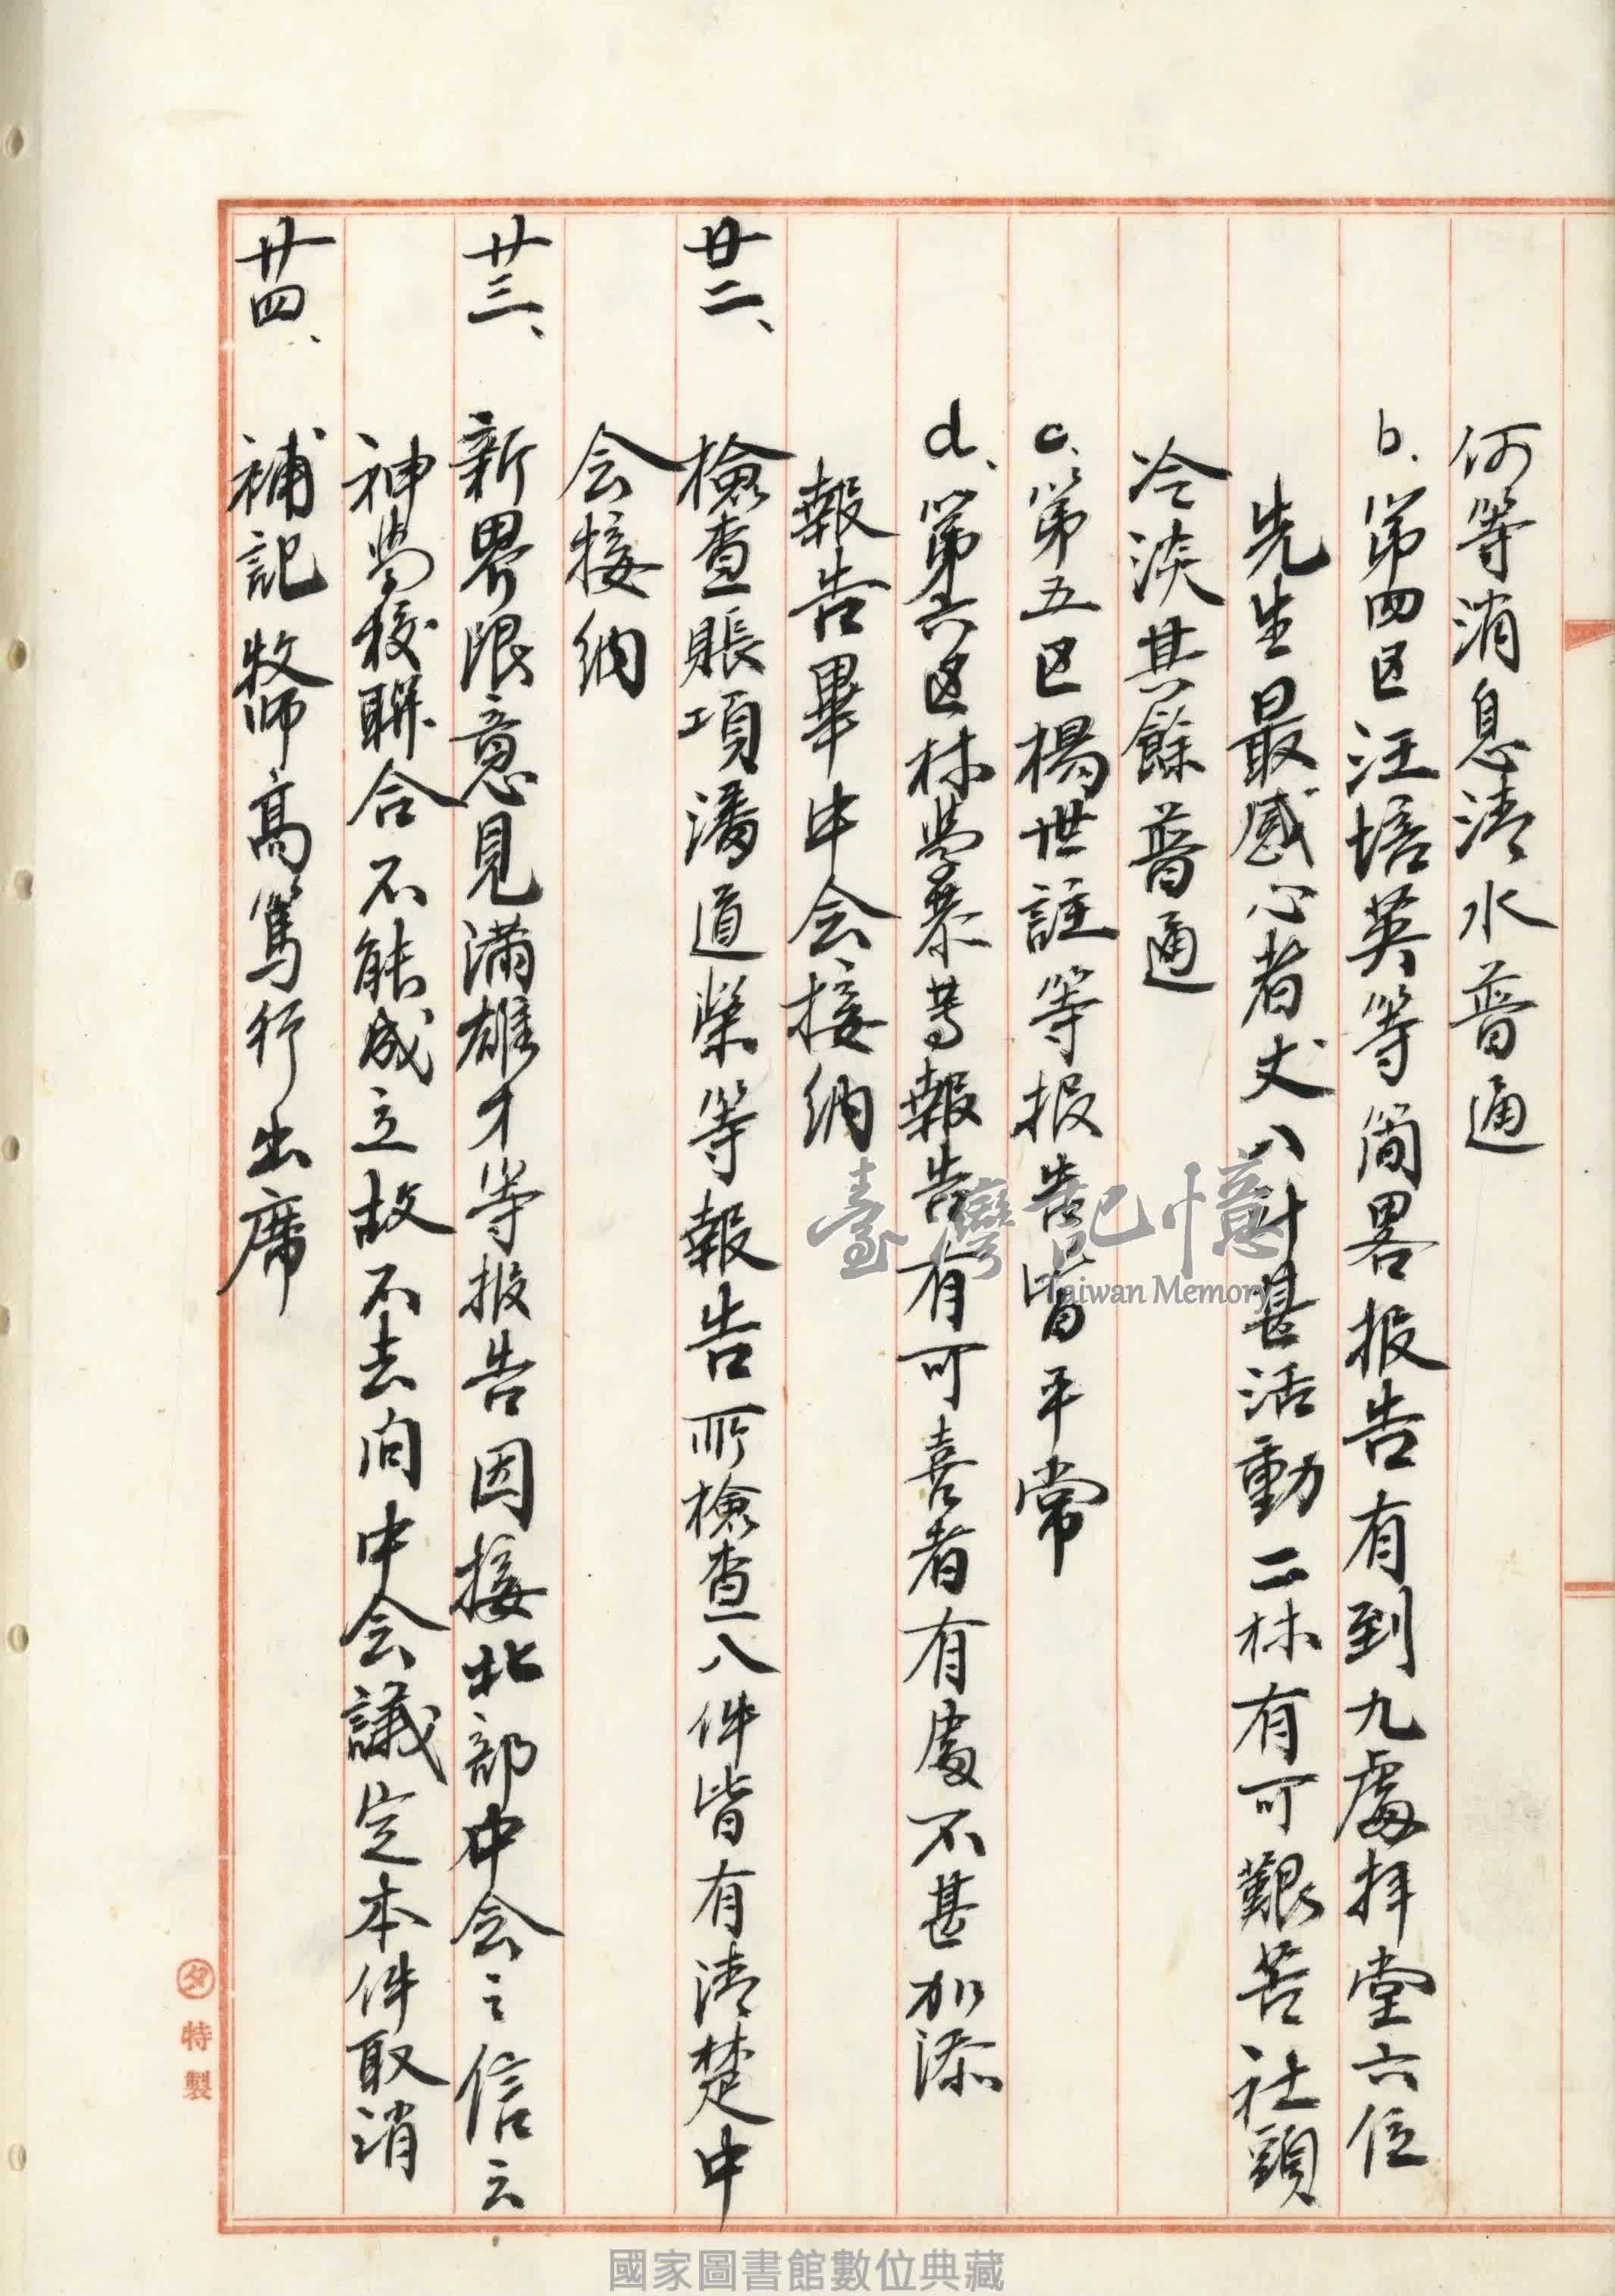 何等消息清水普通
b、第四区汪培英等简畧报告有到九處拜堂六位
先生最感心者丈八斗甚活動二林有可艱苦社頭
冷淡其餘普通
c、第五区楊世註等报告皆平常
d、第六区林學恭等報告有可喜者有處不甚加添
報告畢中会接納
廿二、檢查賬項潘道榮等報告所檢查八件皆有清楚中
会接納
廿三、新界限意見滿雄才等报告因接北部中会之信云
神学校聯合不能成立故不去问中会議定本件取消
廿四、補記牧师高篤行出席
タ特製
臺灣記憶
Taiwan Memory
國家圖書館數位典藏